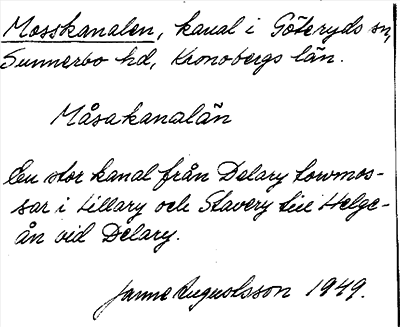 Mosskanalen, kanal i Göteryds sn,
Sunnerbo hd, Kronobergs län.
Måsakanalän
En stor kanal från Delary towmos-
sar i Lillary och Stavery till Helge-
ån vid Delary.
Janne Augustsson 1949.